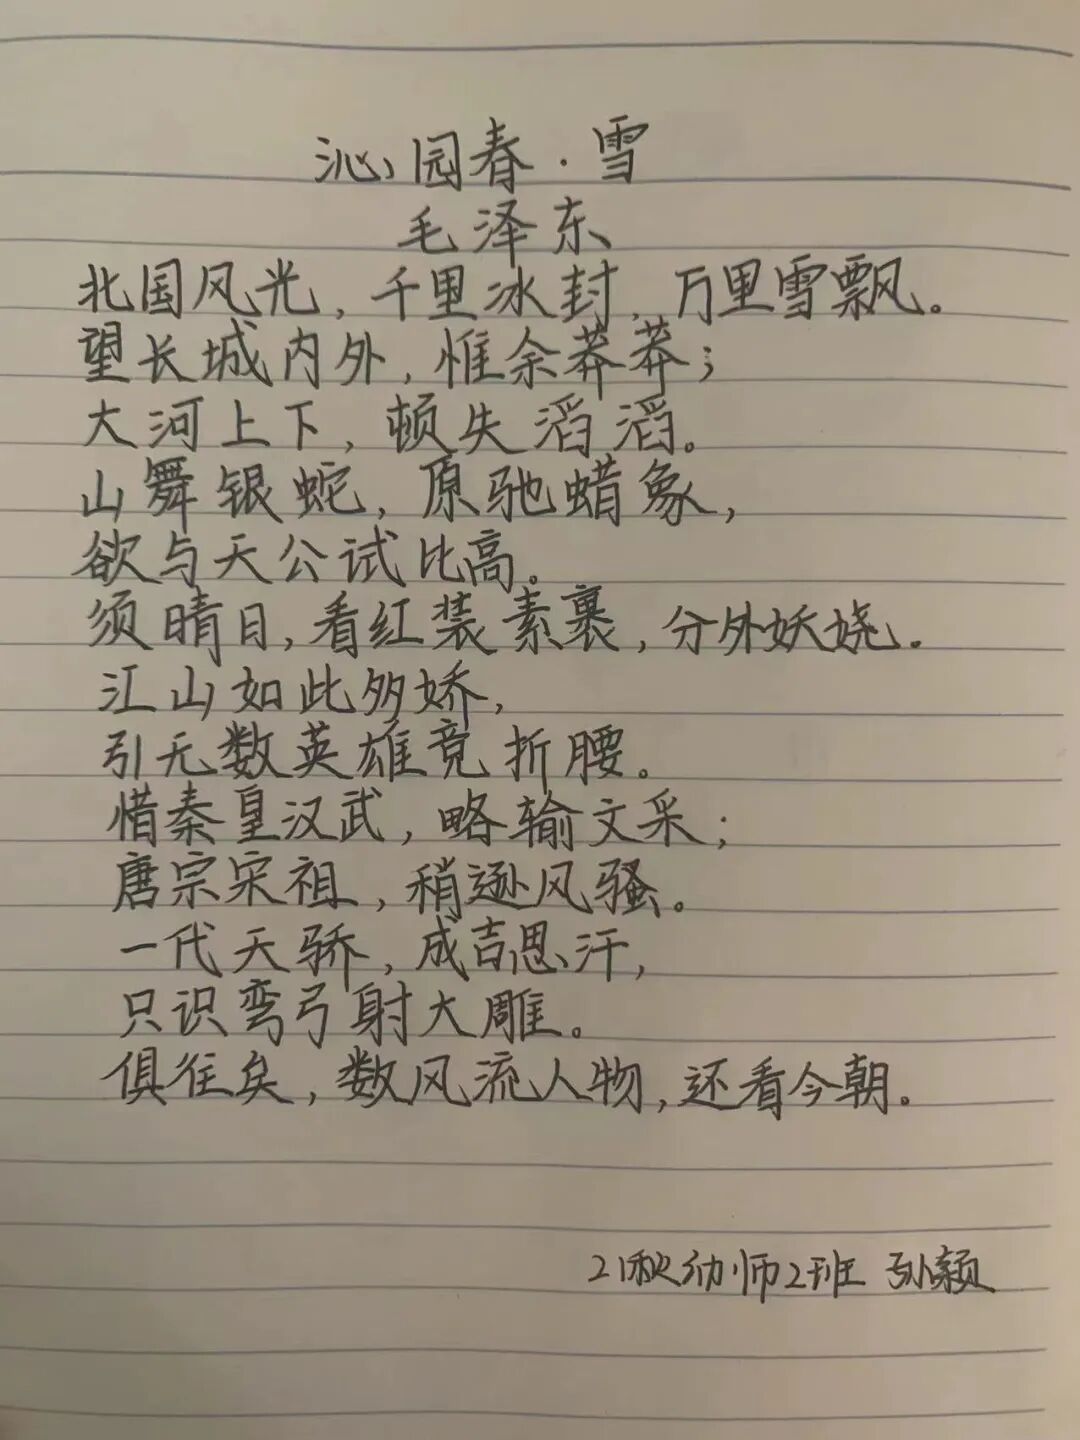 沁园春·雪
毛泽东
北国风光,千里冰封,万里雪飘。
望长城内外,惟余莽莽;
大河上下,顿失滔滔。
山舞银蛇,原驰蜡象,
欲与天公试比高。
须晴日,看红装素裹,分外妖娆.
江山如此多娇,
引无数英雄竞折腰。
惜秦皇汉武,略输文采;
唐宗宋祖,稍逊风骚。
一代天骄,成吉思汗,
只识弯弓射大雕。
俱往矣,数风流人物,还看今朝.
21秋幼师2班 孙颖